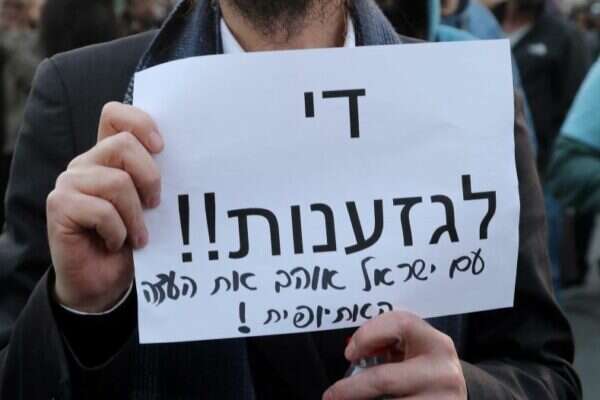 די
לגזענות!!
עם ישראל אוהב את העדה
האתיופית!